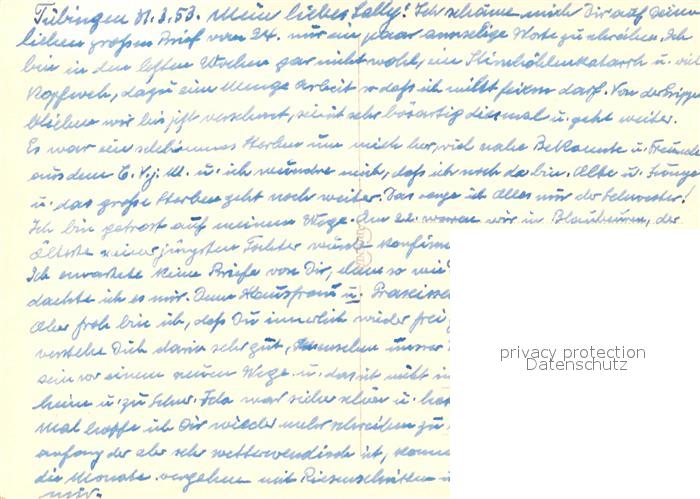 Tübingen 31.3.53. Mein liebes Sally! Ich schäme mich Dir auf Deinen
lieben großen Brief vom 24. nur ein paar armselige Worte zu schreiben. Ich
bin in den letzten Wochen gar nicht wohl, ein Stirnhöhlenkatarrh u. viel
Kopfweh, dazu eine Menge Arbeit so daß ich nicht feiern darf. Von der Grippe
blieben wir bis jetzt verschont, sie ist sehr bösartig diesmal u. geht weiter.
Es war ein schlimmes Sterben um mich her, viel nahe Bekannte u. Freunde
aus dem C.V.j.M. u. ich wundre mich, daß ich noch da bin. Alte u. Junge
u. das große Sterben geht noch weiter. Das sage ich Alles nur der Schwester!
Ich bin getrost auf meinem Wege. Am 22. waren wir in Blaubeuren, der
Älteste meiner jüngsten Tochter wurde
Ich erwartete keine Briefe von Dir, denn so wie
dachte ich es mir. Denn Hausfrau u.
Aber froh bin ich, daß Du innerlich wieder frei
verstehe Dich darin sehr gut, Menschen unsrer
sein vor einem neuen Wege u. das ist nicht
heim u. zu Schw. Ida war sicher schön u.
Mal hoffe ich Dir wieder mehr schreiben zu
anfang der aber sehr wetterwendisch ist,
die Monate vergehen mit Riesenschritten
nur.
privacy protection
Datenschutz